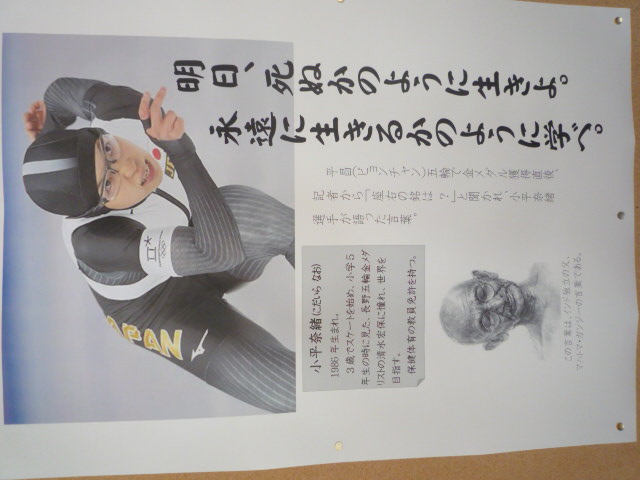 JAPAN
明日、死ぬかのように生きよ。
永遠に生きるかのように学べ。
平昌(ピョンチャン)五輪で金メダル獲得直後、
記者から「座右の銘は?」と聞かれ、小平奈緒
選手が語った言葉。
小平奈緒(こだいら なお)
1986年生まれ。
3歳でスケートを始め、小学5
年生の時に見た、長野五輪金メダ
リストの清水宏保に憧れ、世界を
目指す。
保健体育の教員免許を持つ。
この言葉は、インド独立の父、
マハトマ・ガンジーの言葉である。